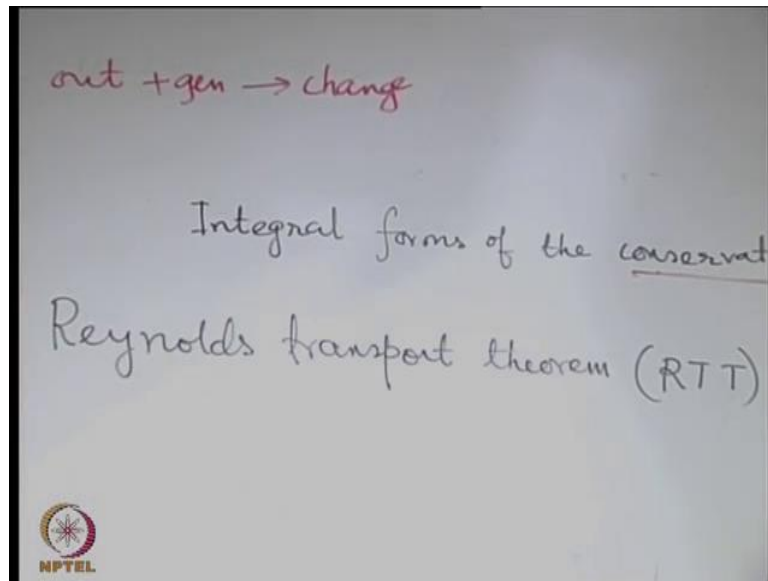 out + gen → change
Integral forms of the conservat
Reynolds transport theorem (RTT)
NPTEL